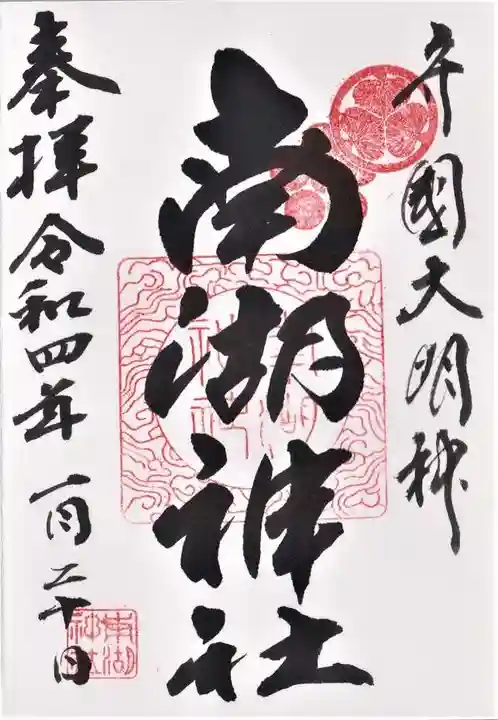 守國大明神
南湖神社
奉拝 令和四年 一月二十日
南湖
神社
南湖
神社